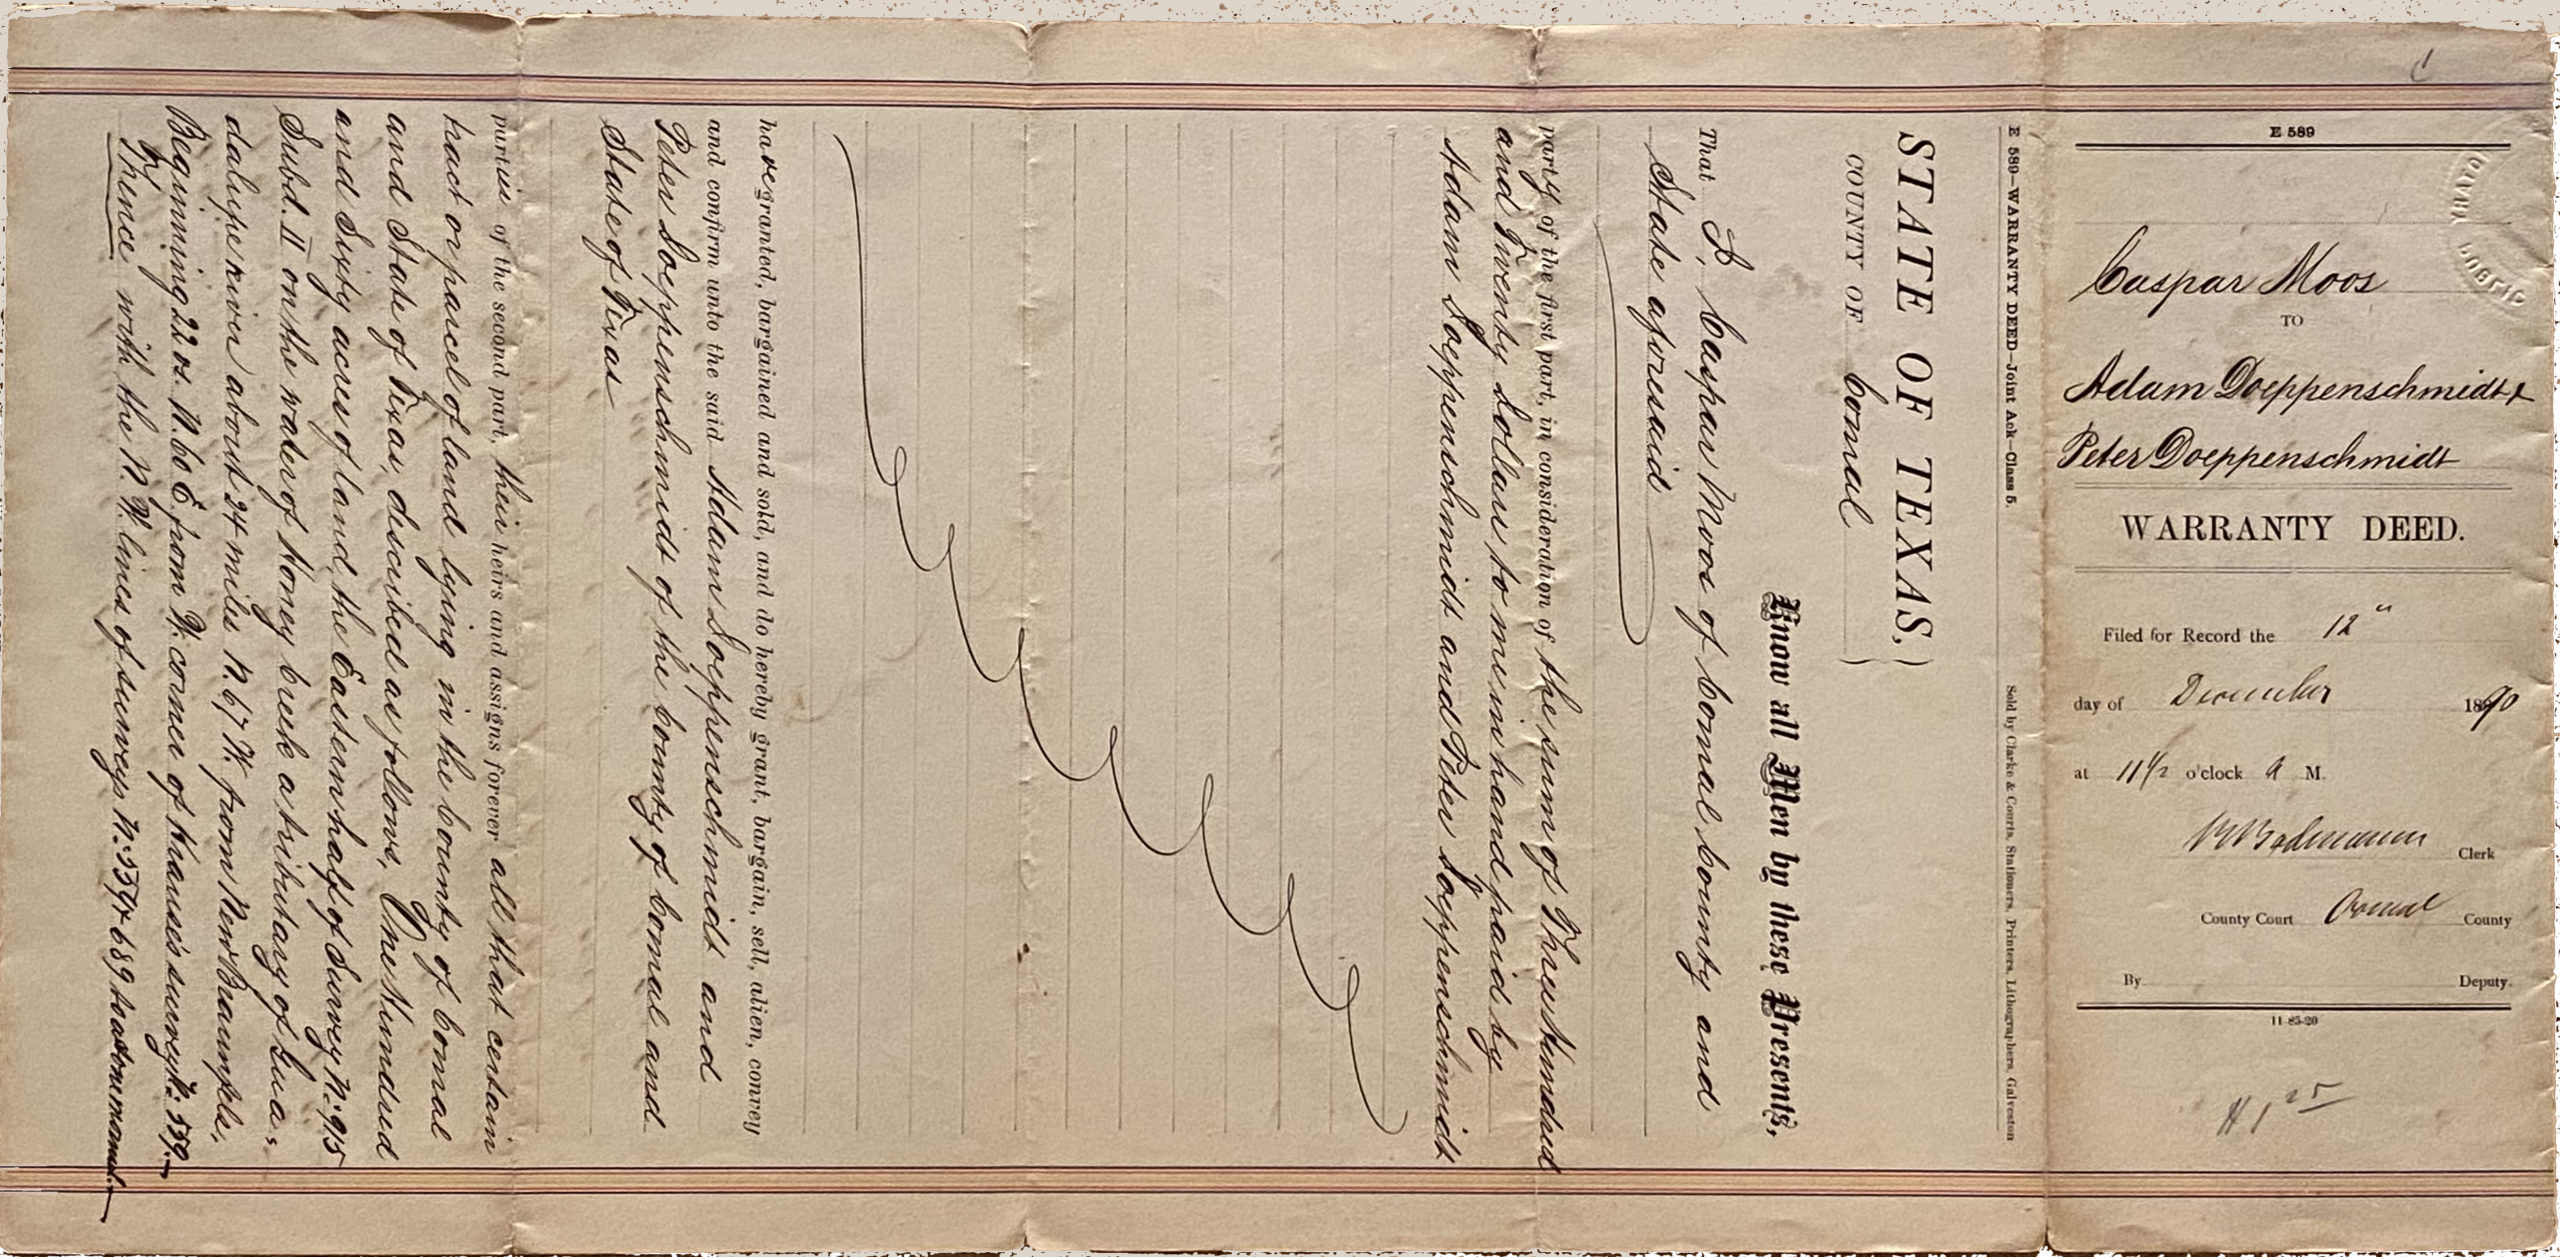 E 589
NOTARY PUBLIC
Caspar Moos
TO
Adam Doeppenschmidt &
Peter Doeppenschmidt
WARRANTY DEED.
Filed for Record the 12"
day of December 1890
at 11 1/2 o'clock A M.
Clerk
County Court Comal County
By Deputy.
11-85-20
$1 25
E 589—WARRANTY DEED—Joint Ack—Class 5. Sold by Clarke & Courts, Stationers, Printers, Lithographers, Galveston
STATE OF TEXAS, }
COUNTY OF Comal }
Know all Men by these Presents,
That I, Caspar Moos of Comal County and
State aforesaid
party of the first part, in consideration of the sum of Three Hundred
and Twenty Dollars to me in hand paid by
Adam Doeppenschmidt and Peter Doeppenschmidt
have granted, bargained and sold, and do hereby grant, bargain, sell, alien, convey
and confirm unto the said Adam Doeppenschmidt and
Peter Doeppenschmidt of the County of Comal and
State of Texas
parties of the second part, their heirs and assigns forever all that certain
tract or parcel of land lying in the County of Comal
and State of Texas, described as follows, One Hundred
and Sixty acres of land, the Eastern half of Survey N: 915
Subd. II on the water of Honey Creek a tributary of Gua=
dalupe river about 24 miles N. 67 W. from New Braunfels,
Beginning 22 vs. N. 60 E from W. corner of Krause's survey N: 589.—
Thence with the N. W. lines of surveys N: 589 & 689 to a stone mound.—